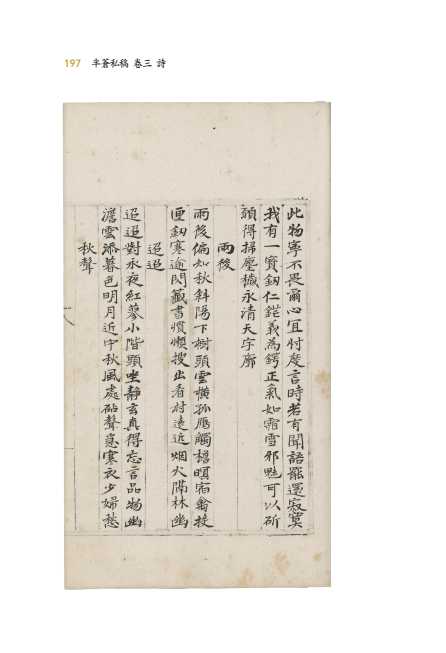 197 半蒼私稿 卷三 詩
此物寧不畏爾心宜忖度言時若有聞語罷還寂寞
我有一寶釰仁鋩義為鍔正氣如霜雪邪魅可以斫
願得掃塵穢永清天宇廓
雨後
雨後偏如秋斜陽下樹頭雲橫孤鴈觸檐暝宿禽投
匣釰寒逾閃藏書慣懶搜出看村遠近烟火隔林幽
迢迢
迢迢對永夜紅蓼小階顯坐靜玄真得忘言品物幽
澹雲添暮色明月近中秋風處砧聲急寒衣少婦愁
秋聲